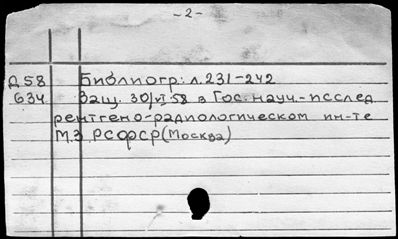 -2-
Д58 Библиогр: л.231-242
634 Защ. 30/VI 58 в Гос. науч.-исслед.
рентгено-радиологическом ин-те
М.З. РСФСР (Москва)